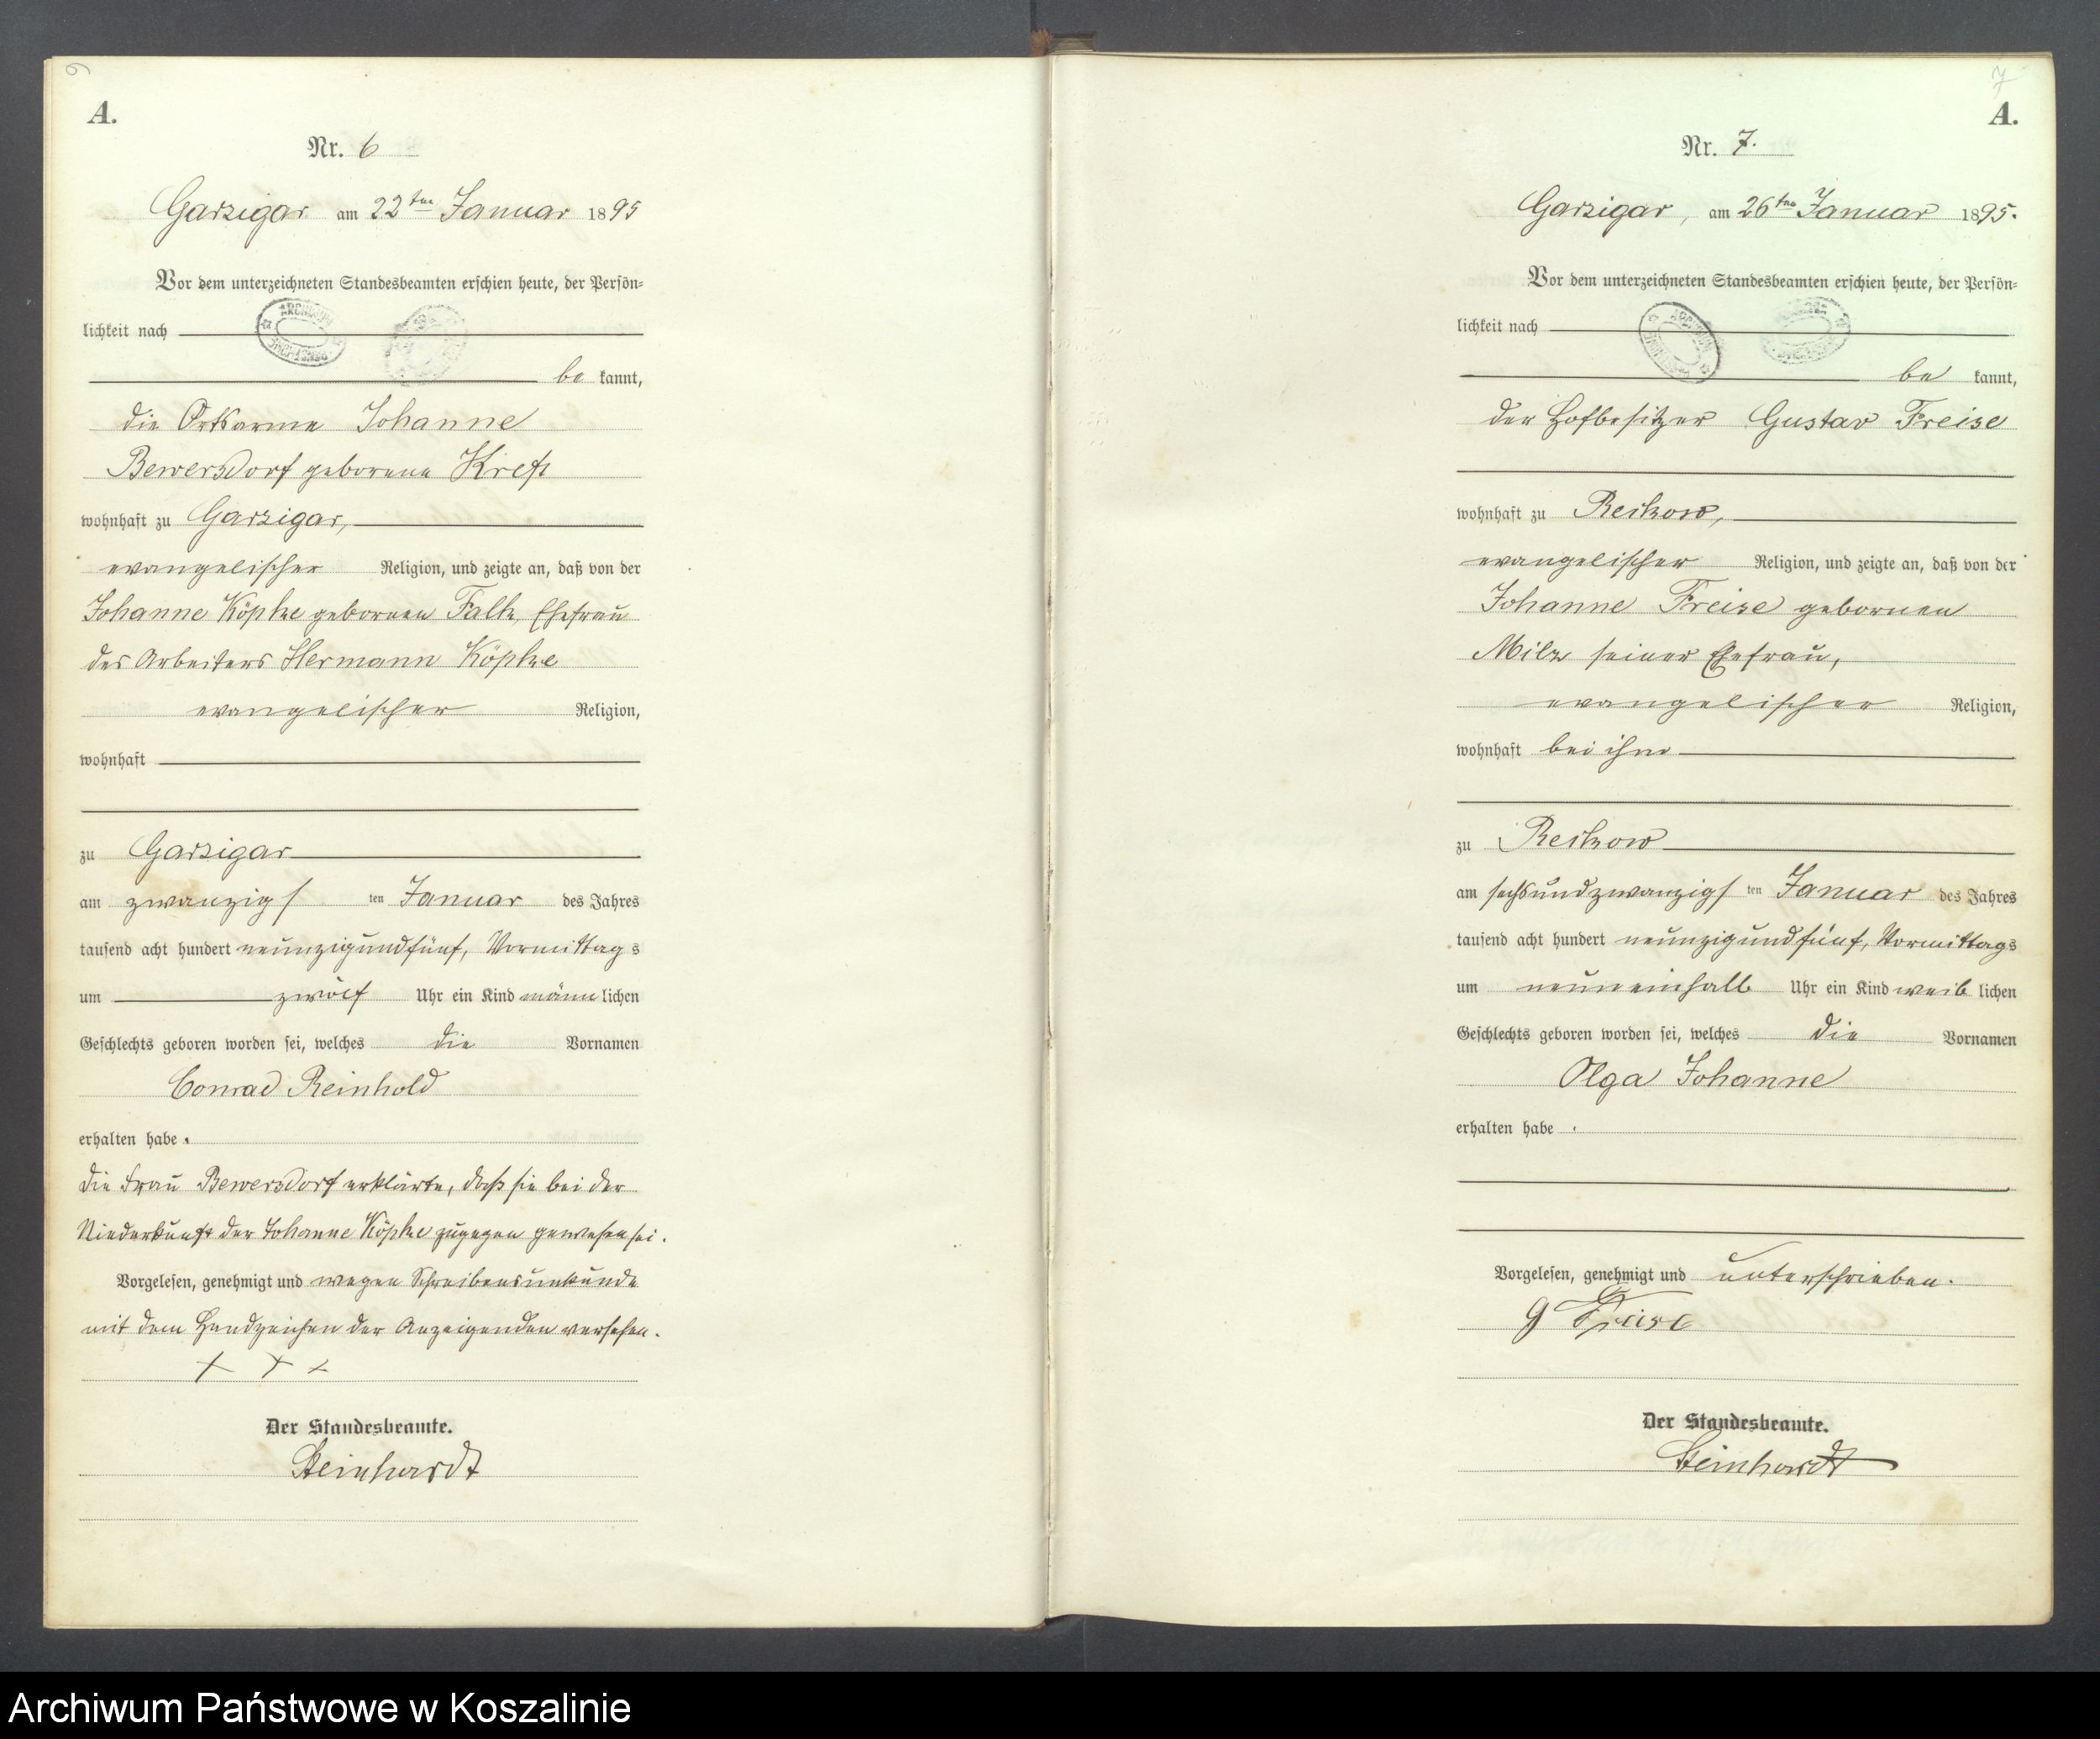 6
A.
Nr. 6
Garzigar am 22ten Januar 1895
Vor dem unterzeichneten Standesbeamten erschien heute, der Persön-
lichkeit nach
be kannt,
die Ortsarme Johanne
Bewersdorf geborene Kreft
wohnhaft zu Garzigar,
evangelischer Religion, und zeigte an, daß von der
Johanne Köpke gebornen Falk, Ehefrau
des Arbeiters Hermann Köpke
evangelischer Religion,
wohnhaft
zu Garzigar
am zwanzigsten Januar des Jahres
tausend acht hundert neunzigundfünf, Vormittags
um zwölf Uhr ein Kind männlichen
Geschlechts geboren worden sei, welches die Vornamen
Conrad Reinhold
erhalten habe.
Die Frau Bewersdorf erklärte, daß sie bei der
Niederkunft der Johanne Köpke zugegen gewesen sei.
Vorgelesen, genehmigt und wegen Schreibensunkunde
mit dem Handzeichen der Anzeigenden versehen.
+ + +
Der Standesbeamte.
Steinhardt
7
A.
Nr. 7.
Garzigar, am 26ten Januar 1895.
Vor dem unterzeichneten Standesbeamten erschien heute, der Persön-
lichkeit nach
be kannt,
der Hofbesitzer Gustav Freise
wohnhaft zu Reckow,
evangelischer Religion, und zeigte an, daß von der
Johanne Freise gebornen
Milz seiner Ehefrau,
evangelischer Religion,
wohnhaft bei ihm
zu Reckow
am sechsundzwanzigsten Januar des Jahres
tausend acht hundert neunzigundfünf, Vormittags
um neuneinhalb Uhr ein Kind weiblichen
Geschlechts geboren worden sei, welches die Vornamen
Olga Johanne
erhalten habe.
Vorgelesen, genehmigt und unterschrieben.
G Freise
Der Standesbeamte.
Steinhardt
Archiwum Państwowe w Koszalinie